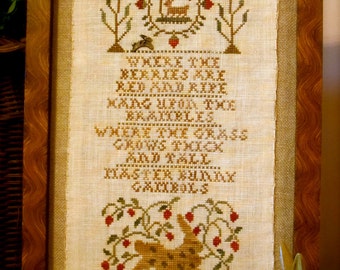 WHERE THE
BERRIES ARE
RED AND RIPE
HANG UPON THE
BRAMBLES
WHERE THE GRASS
GROWS THICK
AND TALL
MASTER BUNNY
GAMBOLS